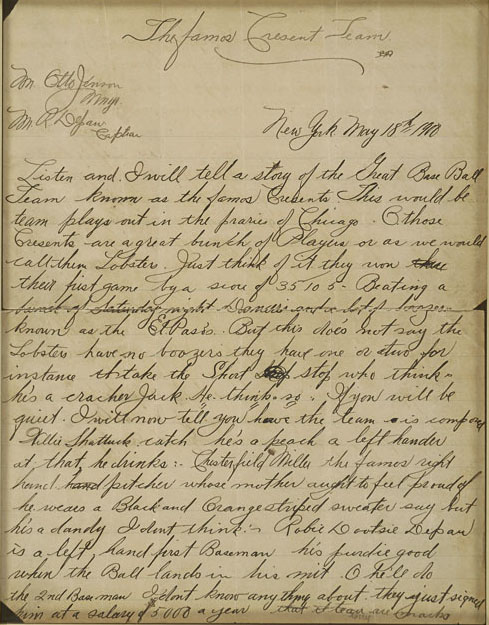 The famos Cresent Team
Wm Otto Jenson
Mngr.
Wm. R. Depaw
Captian
New York May 18th 1910
Listen and I will tell a story of the Great Base Ball
Team known as the famos Cresents This would be
team plays out in the prarie of Chicago. O those
Cresents are a great bunch of Players or as we would
call them Lobsters. Just think of it they won
their first game by a score of 35 to 5 - Beating a
bunch of Saturday night and a lot of boozers
known as the El Paso's. But this does not say the
Lobsters have no boozers they have one or two for
instance take the Short stop who think
he's a cracher Jack. He thinks so. If you will be
quiet. I will now tell you how the team is composed
Willie Shattuck catch he's a peach a left hander
at that, he drinks :- Chesterfield Miller the famos right
hand hand pitcher whose mother aught to feel proud of
he weares a Black and Orange striped sweater say but
he's a dandy I dont think :- Robie Dootsie Depaw
is a left hand first Baseman his purdie good
when the Ball lands in his mit. O hell do
the 2nd Baseman I don't know anything about. they just signed
him at a salary of 5000 a year that it team are